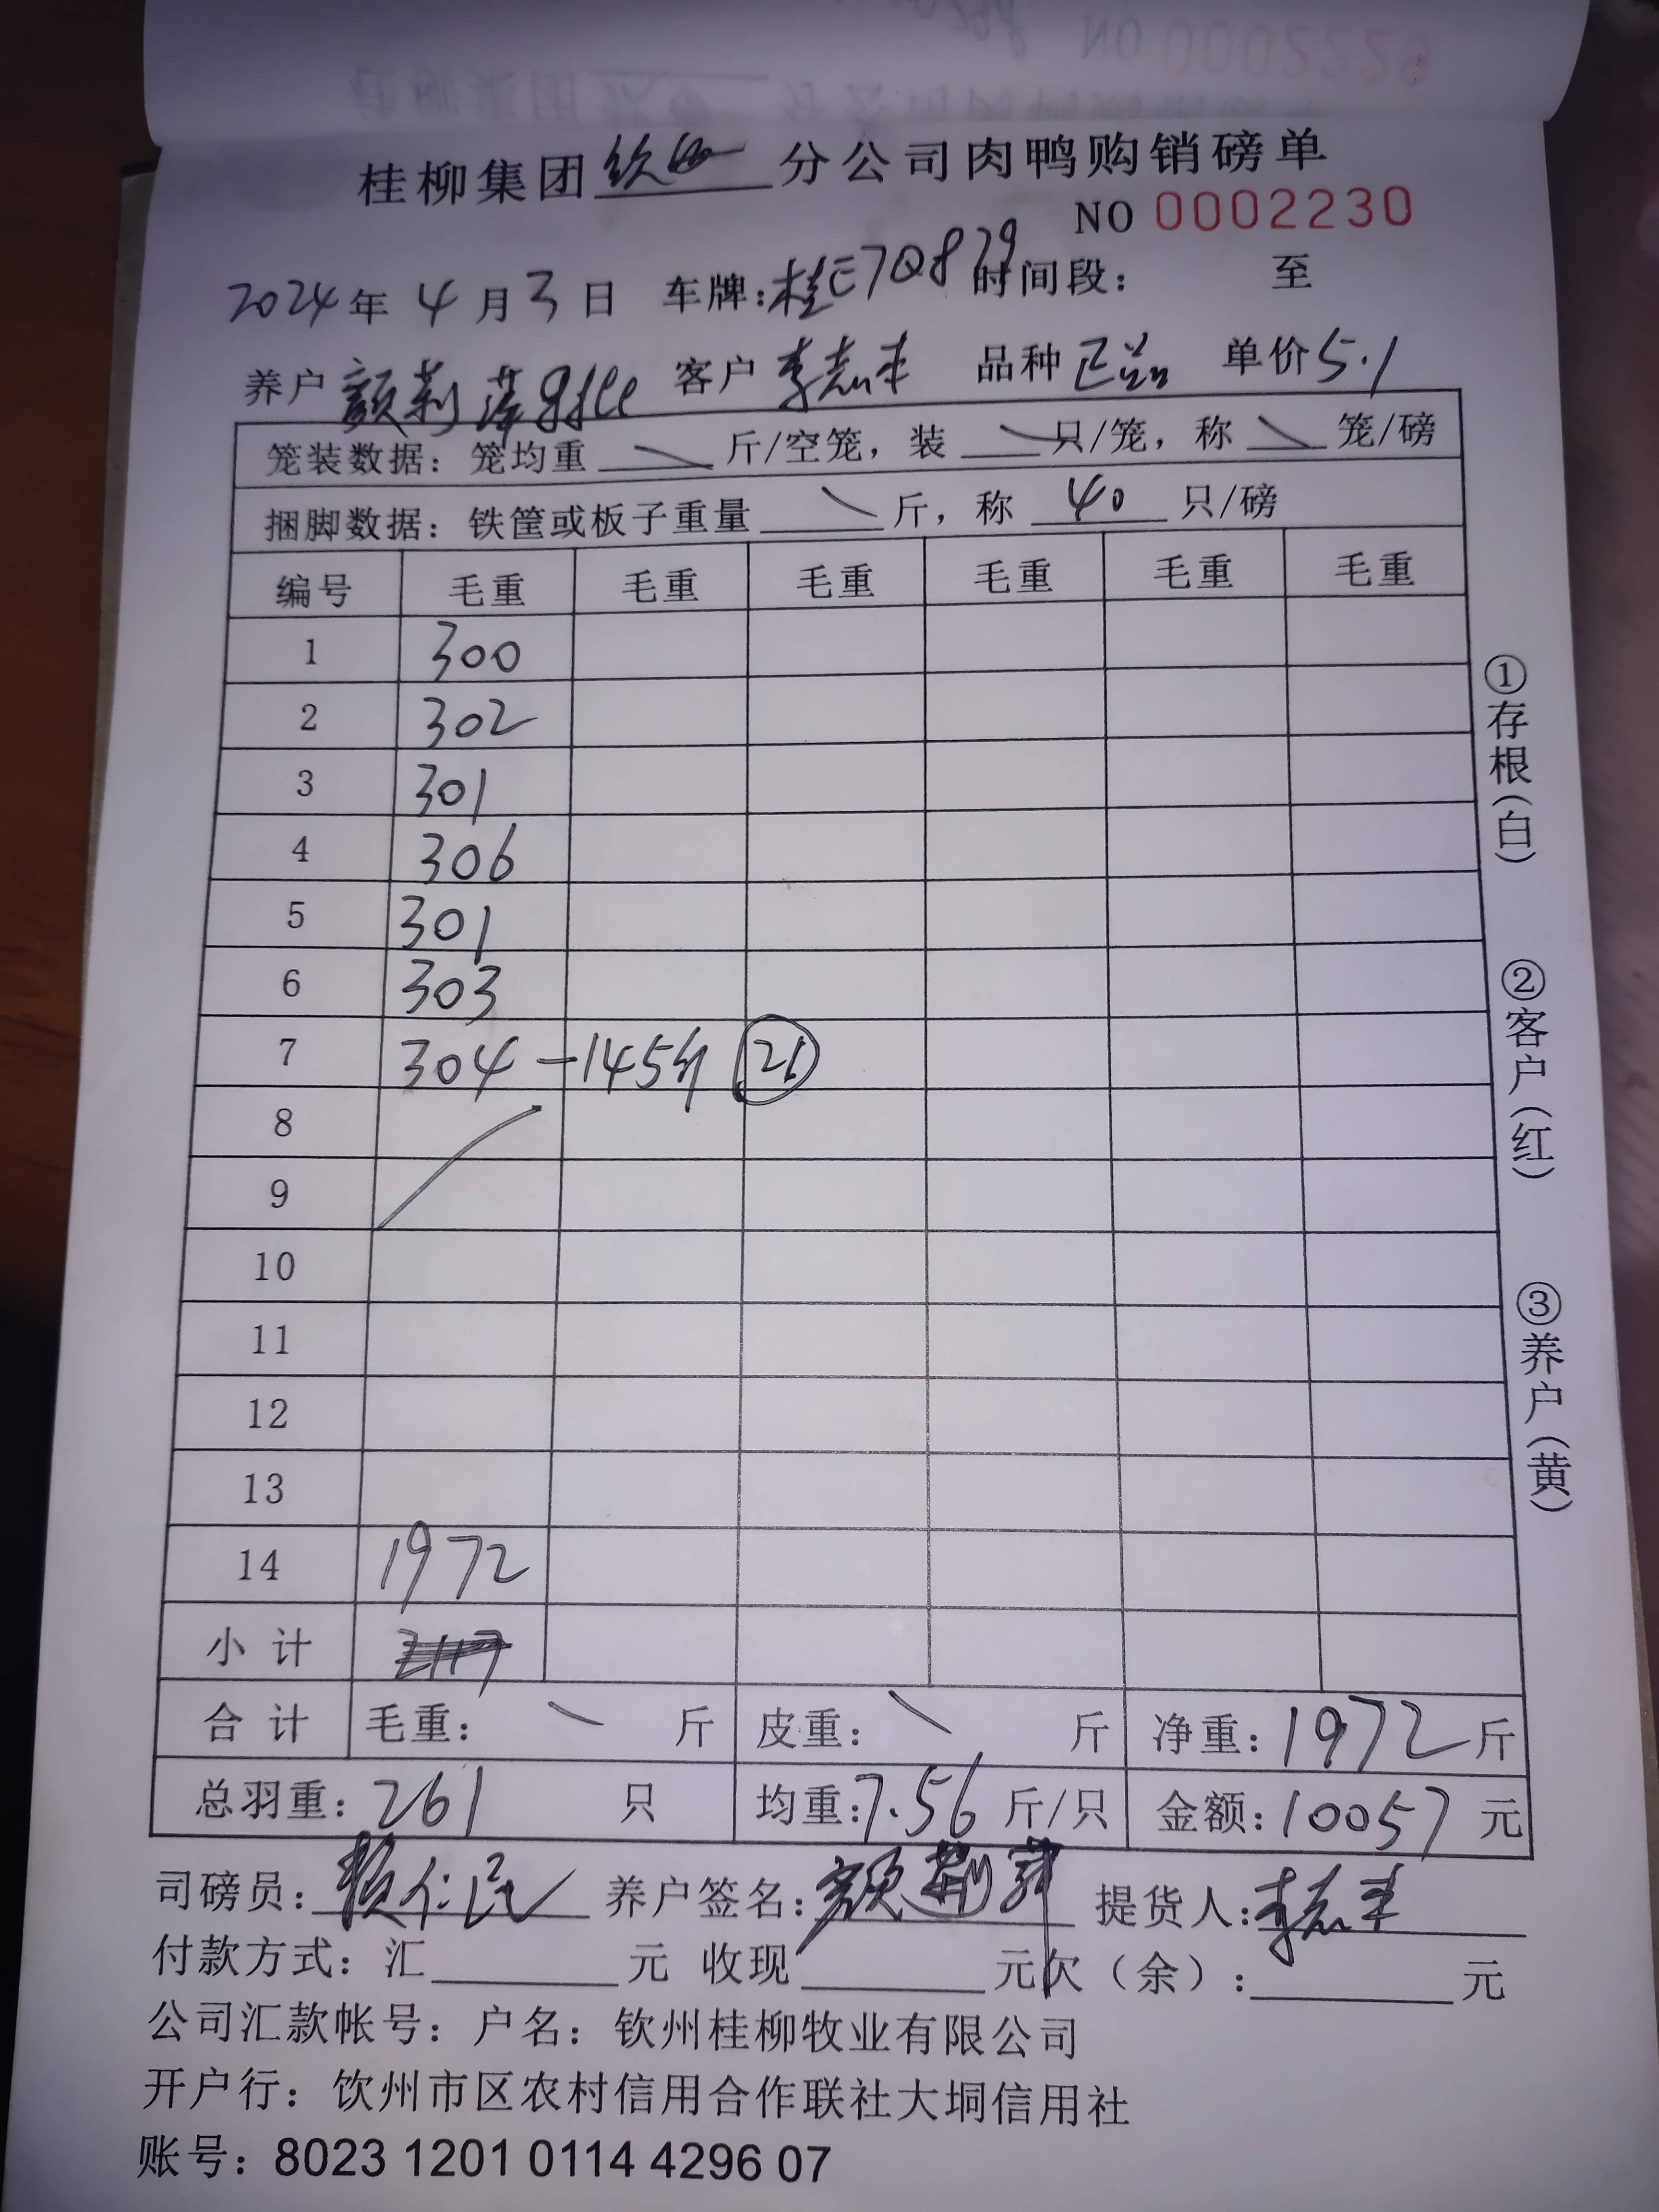 桂柳集团钦州分公司肉鸭购销磅单
NO 0002230
2024年 4月 3日 车牌:桂E7Q879 时间段: 至
养户 颜莉萍 客户 李志丰 品种 正品 单价 5.1
笼装数据: 笼均重 \ 斤/空笼, 装 \ 只/笼, 称 \ 笼/磅
捆脚数据: 铁筐或板子重量 \ 斤, 称 40 只/磅
编号 毛重 毛重 毛重 毛重 毛重 毛重
1 300
2 302
3 301
4 306
5 301
6 303
7 304 -145斤 21
8
9
10
11
12
13
14 1972
小计 2117
合计 毛重: \ 斤 皮重: \ 斤 净重: 1972 斤
总羽重: 261 只 均重: 7.56 斤/只 金额: 10057 元
司磅员: 颜仁民 养户签名: 颜莉萍 提货人: 李志丰
付款方式: 汇 元 收现 元 欠(余): 元
公司汇款帐号: 户名: 钦州桂柳牧业有限公司
开户行: 饮州市区农村信用合作联社大垌信用社
账号: 8023 1201 0114 4296 07
①存根(白)
②客户(红)
③养户(黄)